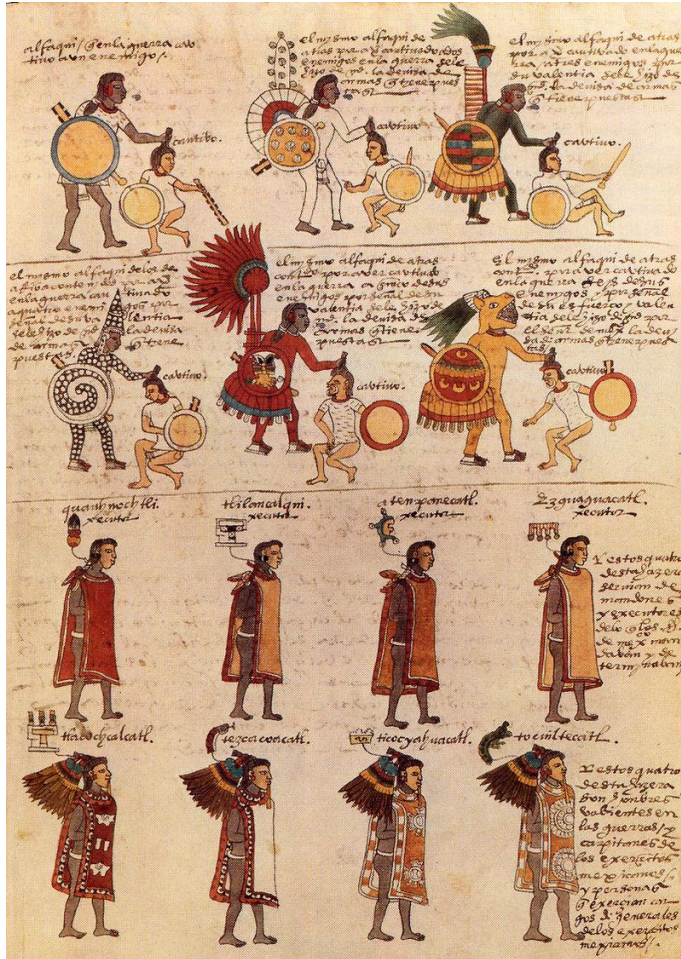 alfaqui / q̃ en la guerra cau
tivo a un enemigo /.
cautivo.
el mismo alfaqui de
atras por a q̃ cautivado a dos
enemigos en la guerra
armas q̃ tiene pues
tas
cautivo
el mismo alfaqui de atras
por a q̃ cautivado en la gue
rra / a tres enemigos / por
su valentia
la devisa de armas
q̃ tiene puestas
cautivo.
el mismo alfaqui
en la guerra cautivado
a quatro
la devisa
de armas tiene
puestas
cautivo.
el mismo alfaqui de atras
por aver cautivado
en la guerra a cinco de sus
enemigos por señal de su
valentia
devisa de
armas q̃ tiene
puestas
cautivo.
el mismo alfaqui de atras
por aver cautivado
en la guerra seys de sus
enemigos / por señal
de su esfuerço y valen
tia
señor de mex la devi
sa de armas q̃ tiene pues
tas
cautivo
quauhnochtli.
xecutor
tlilancalqui
xecutor
atenpanecatl.
xecutor
Ezguaguacatl.
xecutor
Y estos quatro
desta hazera
servian de
mandones
y executores
de lo q̃ los s.es
de mexco man
davan y de
terminavan
tlacochcalcatl.
tezcacoacatl.
ticocyahuacatl.
tocuiltecatl.
Y estos quatro
desta hazera
son honbres
valientes en
las guerras / y
capitanes de
los exercitos
mexicanos /.
y personas
q̃ exercian car
gos de generales
de los exercitos
mexicanos /.